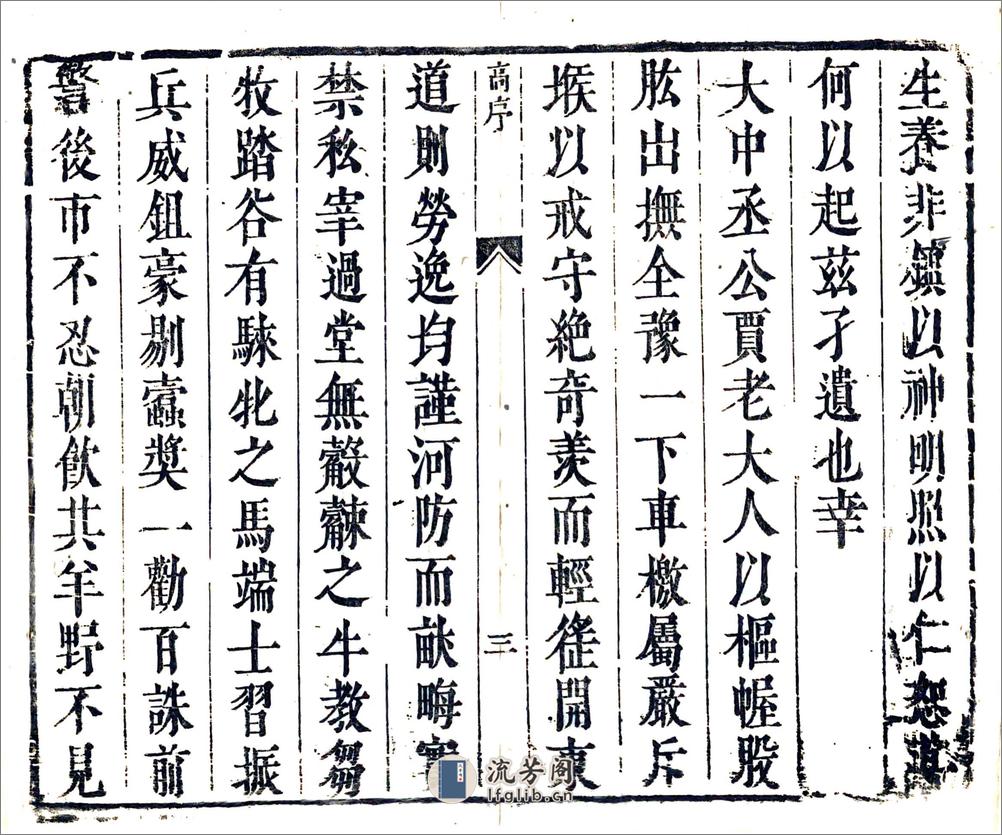 生養非鎮以神明照以仁恕其
何以起茲孑遺也幸
大中丞公賈老大人以樞幄股
肱出撫全豫一下車檄屬嚴斥
堠以戒守絶奇羡而輕徭開東
高序
三
道則勞逸均謹河防而畎畮實
禁私宰過堂無觳觫之牛教芻
牧踏谷有騋牝之馬端士習振
兵威鉏豪剔蠹奬一勸百誅前
警後市不忍朝飲其羊野不見
流芳阁
lfglib.cn